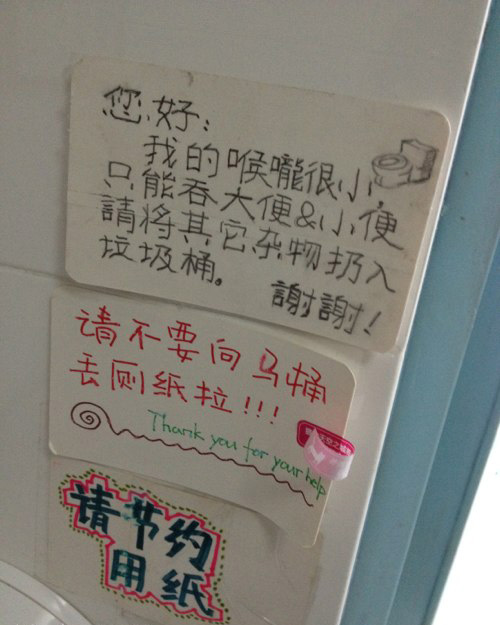 您好：
我的喉嚨很小，
只能吞大便&小便
請将其它杂物扔入
垃圾桶。
謝謝！
请不要向马桶
丢厕纸拉!!!
Thank you for your help
请节约
用纸